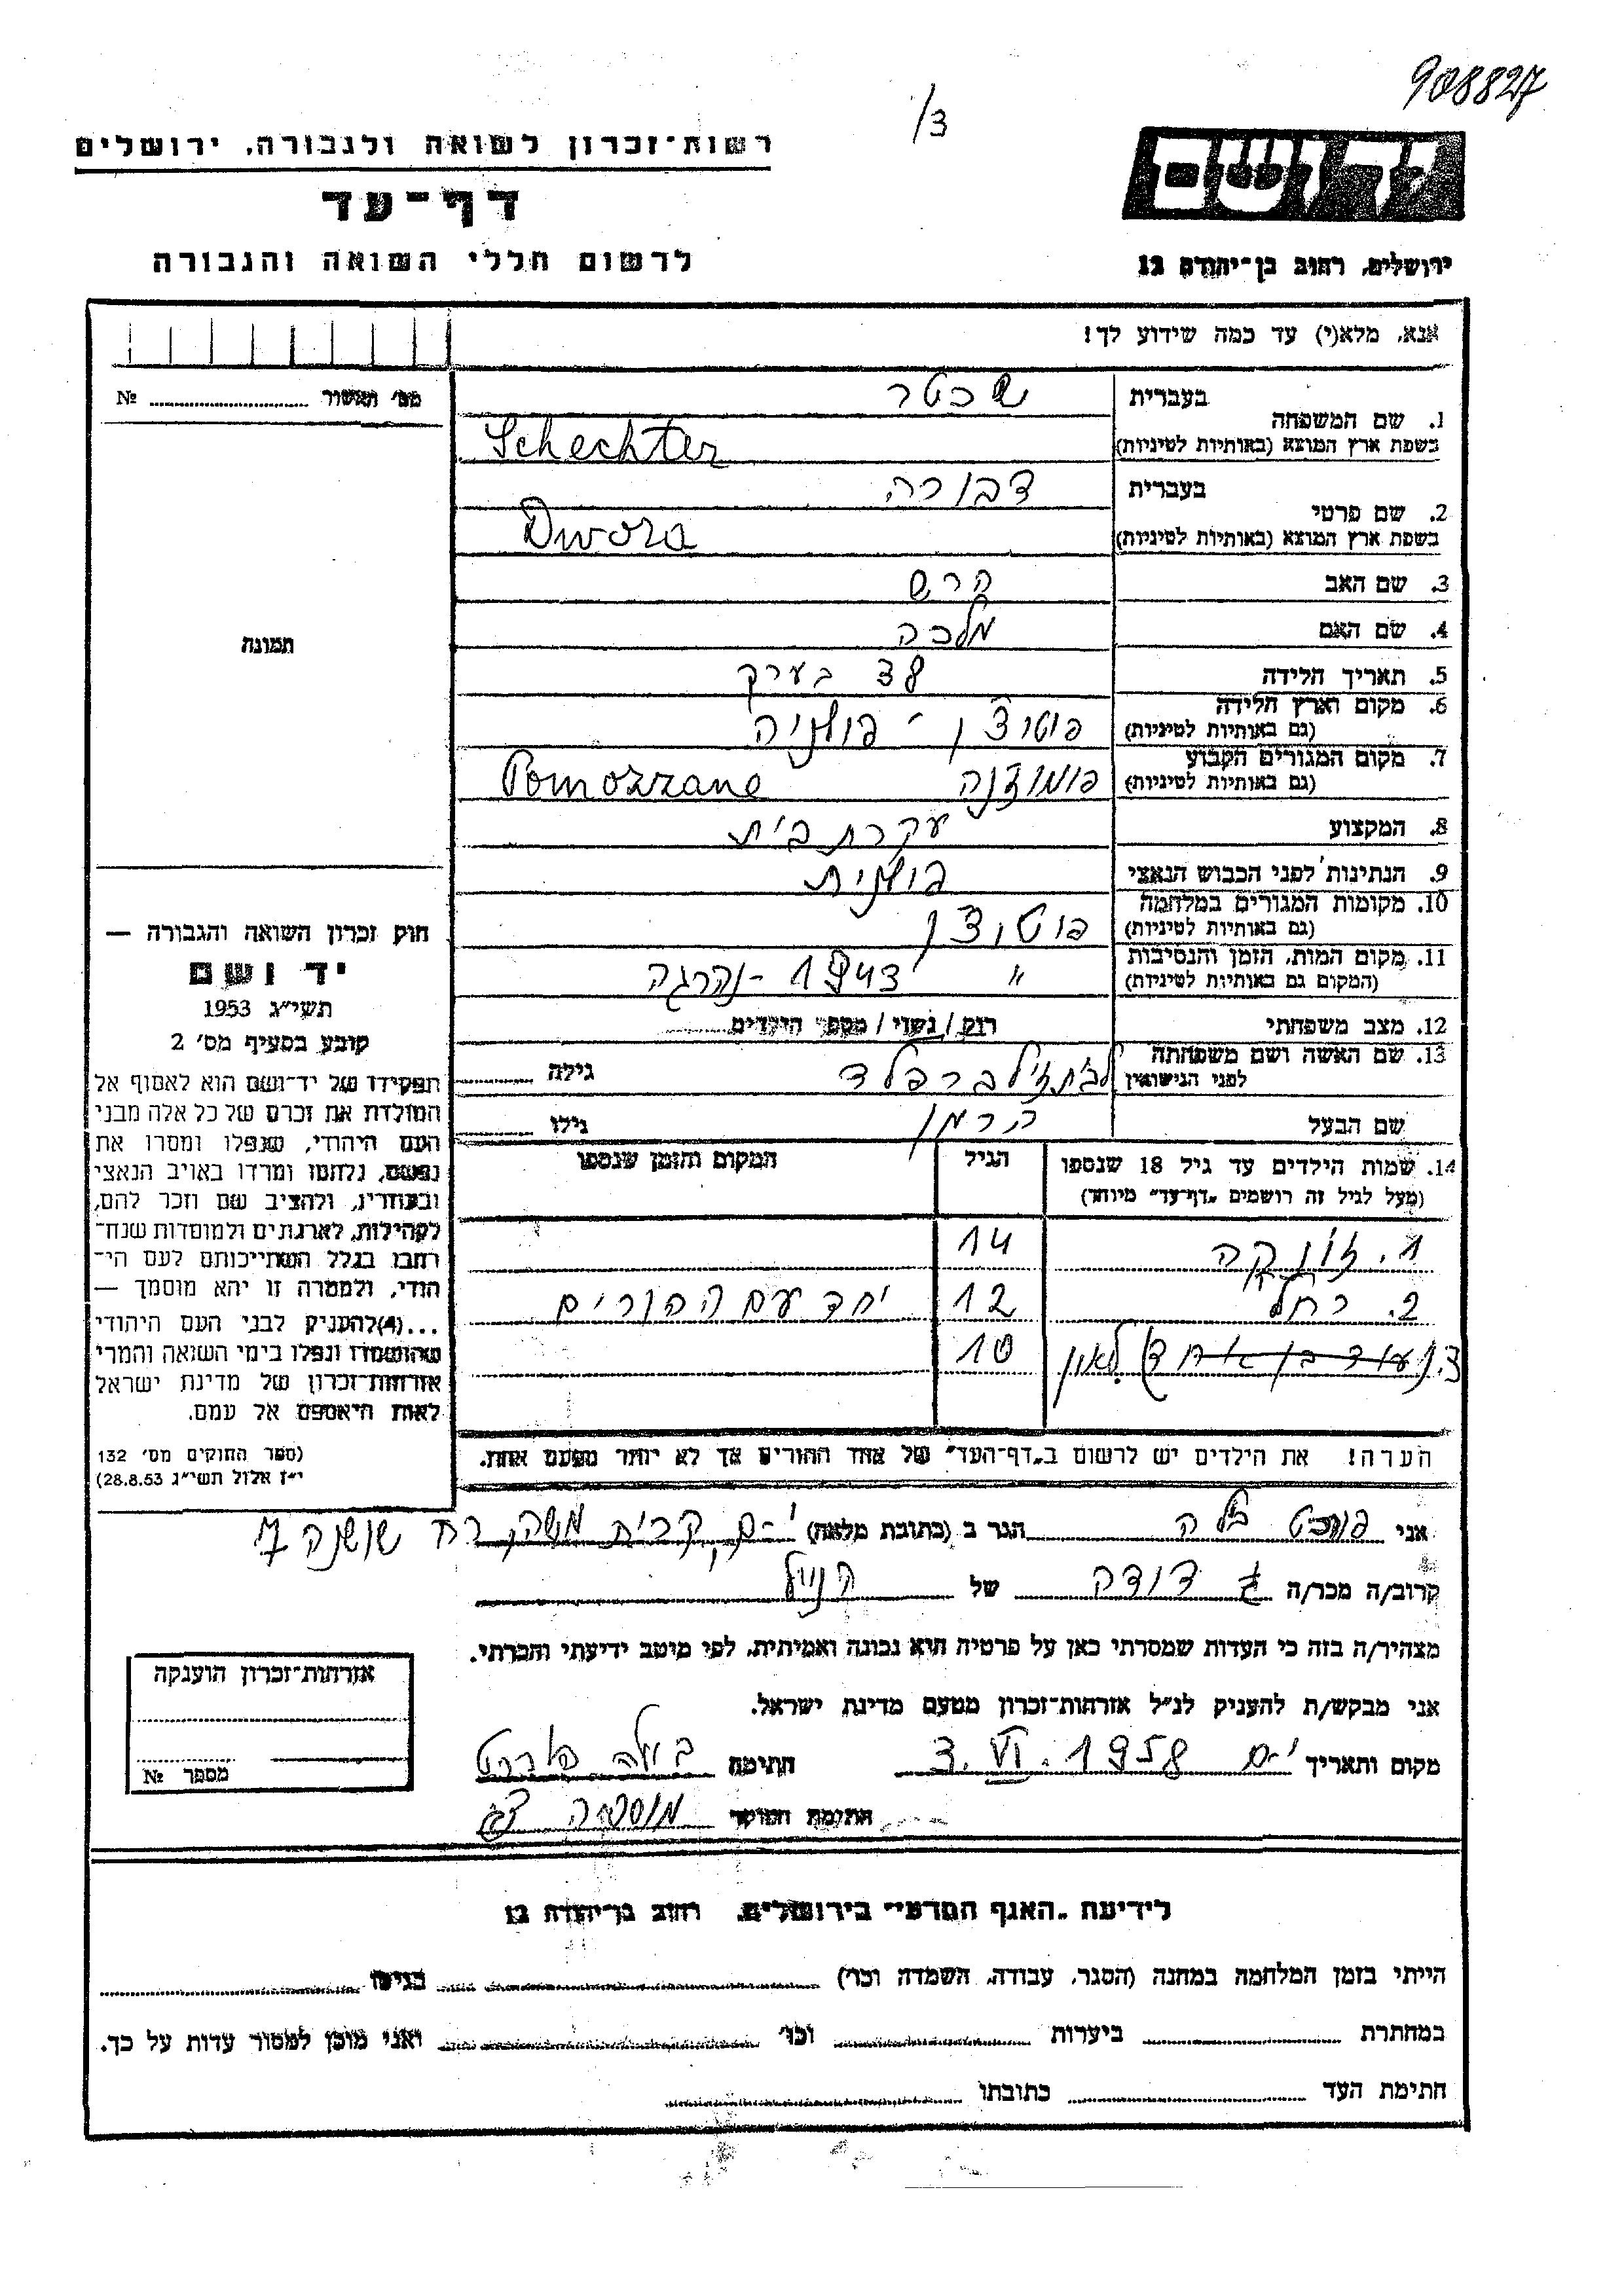 908827
/3
רשות־זכרון לשואה ולגבורה, ירושלים
דף־עד
לרשום חללי השואה והגבורה
יד ושם
ירושלים, רחוב בן־יהודה 12
אנא, מלא(י) עד כמה שידוע לך!
מס׳ תאשור № 
תמונה
1. שם המשפחה
בעברית שכטר
בשפת ארץ המוצא (באותיות לטיניות) Schechter
2. שם פרטי
בעברית דבורה
בשפת ארץ המוצא (באותיות לטיניות) Dwora
3. שם האב הרש
4. שם האם מלכה
5. תאריך הלידה 38 בערך
6. מקום וארץ הלידה
(גם באותיות לטיניות) פוטוצ׳ן - פולניה
7. מקום המגורים הקבוע
(גם באותיות לטיניות) פומוז׳נה Pomorzane
8. המקצוע עקרת בית
9. הנתינות לפני הכבוש הנאצי פולנית
10. מקומות המגורים במלחמה
(גם באותיות לטיניות) פוטוצ׳ן
11. מקום המות, הזמן והנסיבות
(המקום גם באותיות לטיניות) " 1943 - נהרגה
12. מצב משפחתי רוק / נשוי / מספר הילדים
13. שם האשה ושם משפחתה
לפני הנישואין לבית זילברפלד גילה
שם הבעל הרמן גילו
14. שמות הילדים עד גיל 18 שנספו
(מעל לגיל זה רושמים „דף־עד" מיוחד)
הגיל
המקום והזמן שנספו
1. זונקה 14
2. רחל 12 יחד עם ההורים
3. לאון 10
הערה! את הילדים יש לרשום ב„דף־העד" של אחד ההורים אך לא יותר מפעם אחת.
חוק זכרון השואה והגבורה —
יד ושם
תשי״ג 1953
קובע בסעיף מס׳ 2
תפקידו של יד־ושם הוא לאסוף אל
המולדת את זכרם של כל אלה מבני
העם היהודי, שנפלו ומסרו את
נפשם, נלחמו ומרדו באויב הנאצי
ובעוזריו, ולהציב שם וזכר להם,
לקהילות, לארגונים ולמוסדות שנח־
רבו בגלל השתייכותם לעם הי־
הודי, ולמטרה זו יהא מוסמך —
...(4) להעניק לבני העם היהודי
שהושמדו ונפלו בימי השואה והמרי
אזרחות־זכרון של מדינת ישראל
לאות היאספם אל עמם.
(ספר החוקים מס׳ 132
י״ז אלול תשי״ג 28.8.53)
אני בלה הגר ב (כתובת מלאה) י-ם, קרית משה, רח שושנה 7
קרוב/ה מכר/ה דודה של הנ״ל
מצהיר/ה בזה כי העדות שמסרתי כאן על פרטיה היא נכונה ואמיתית, לפי מיטב ידיעתי והכרתי.
אני מבקש/ת להעניק לנ״ל אזרחות־זכרון מטעם מדינת ישראל.
מקום ותאריך י-ם 3.VI.1958 חתימה בילה
חתימת הפוקד
אזרחות־זכרון הוענקה
מספר №
לידיעת „האגף המדעי" בירושלים, רחוב בן־יהודה 12
הייתי בזמן המלחמה במחנה (הסגר, עבודה, השמדה וכו׳) בגיטו
במחתרת ביערות וכו׳ ואני מוכן למסור עדות על כך.
חתימת העד כתובתו